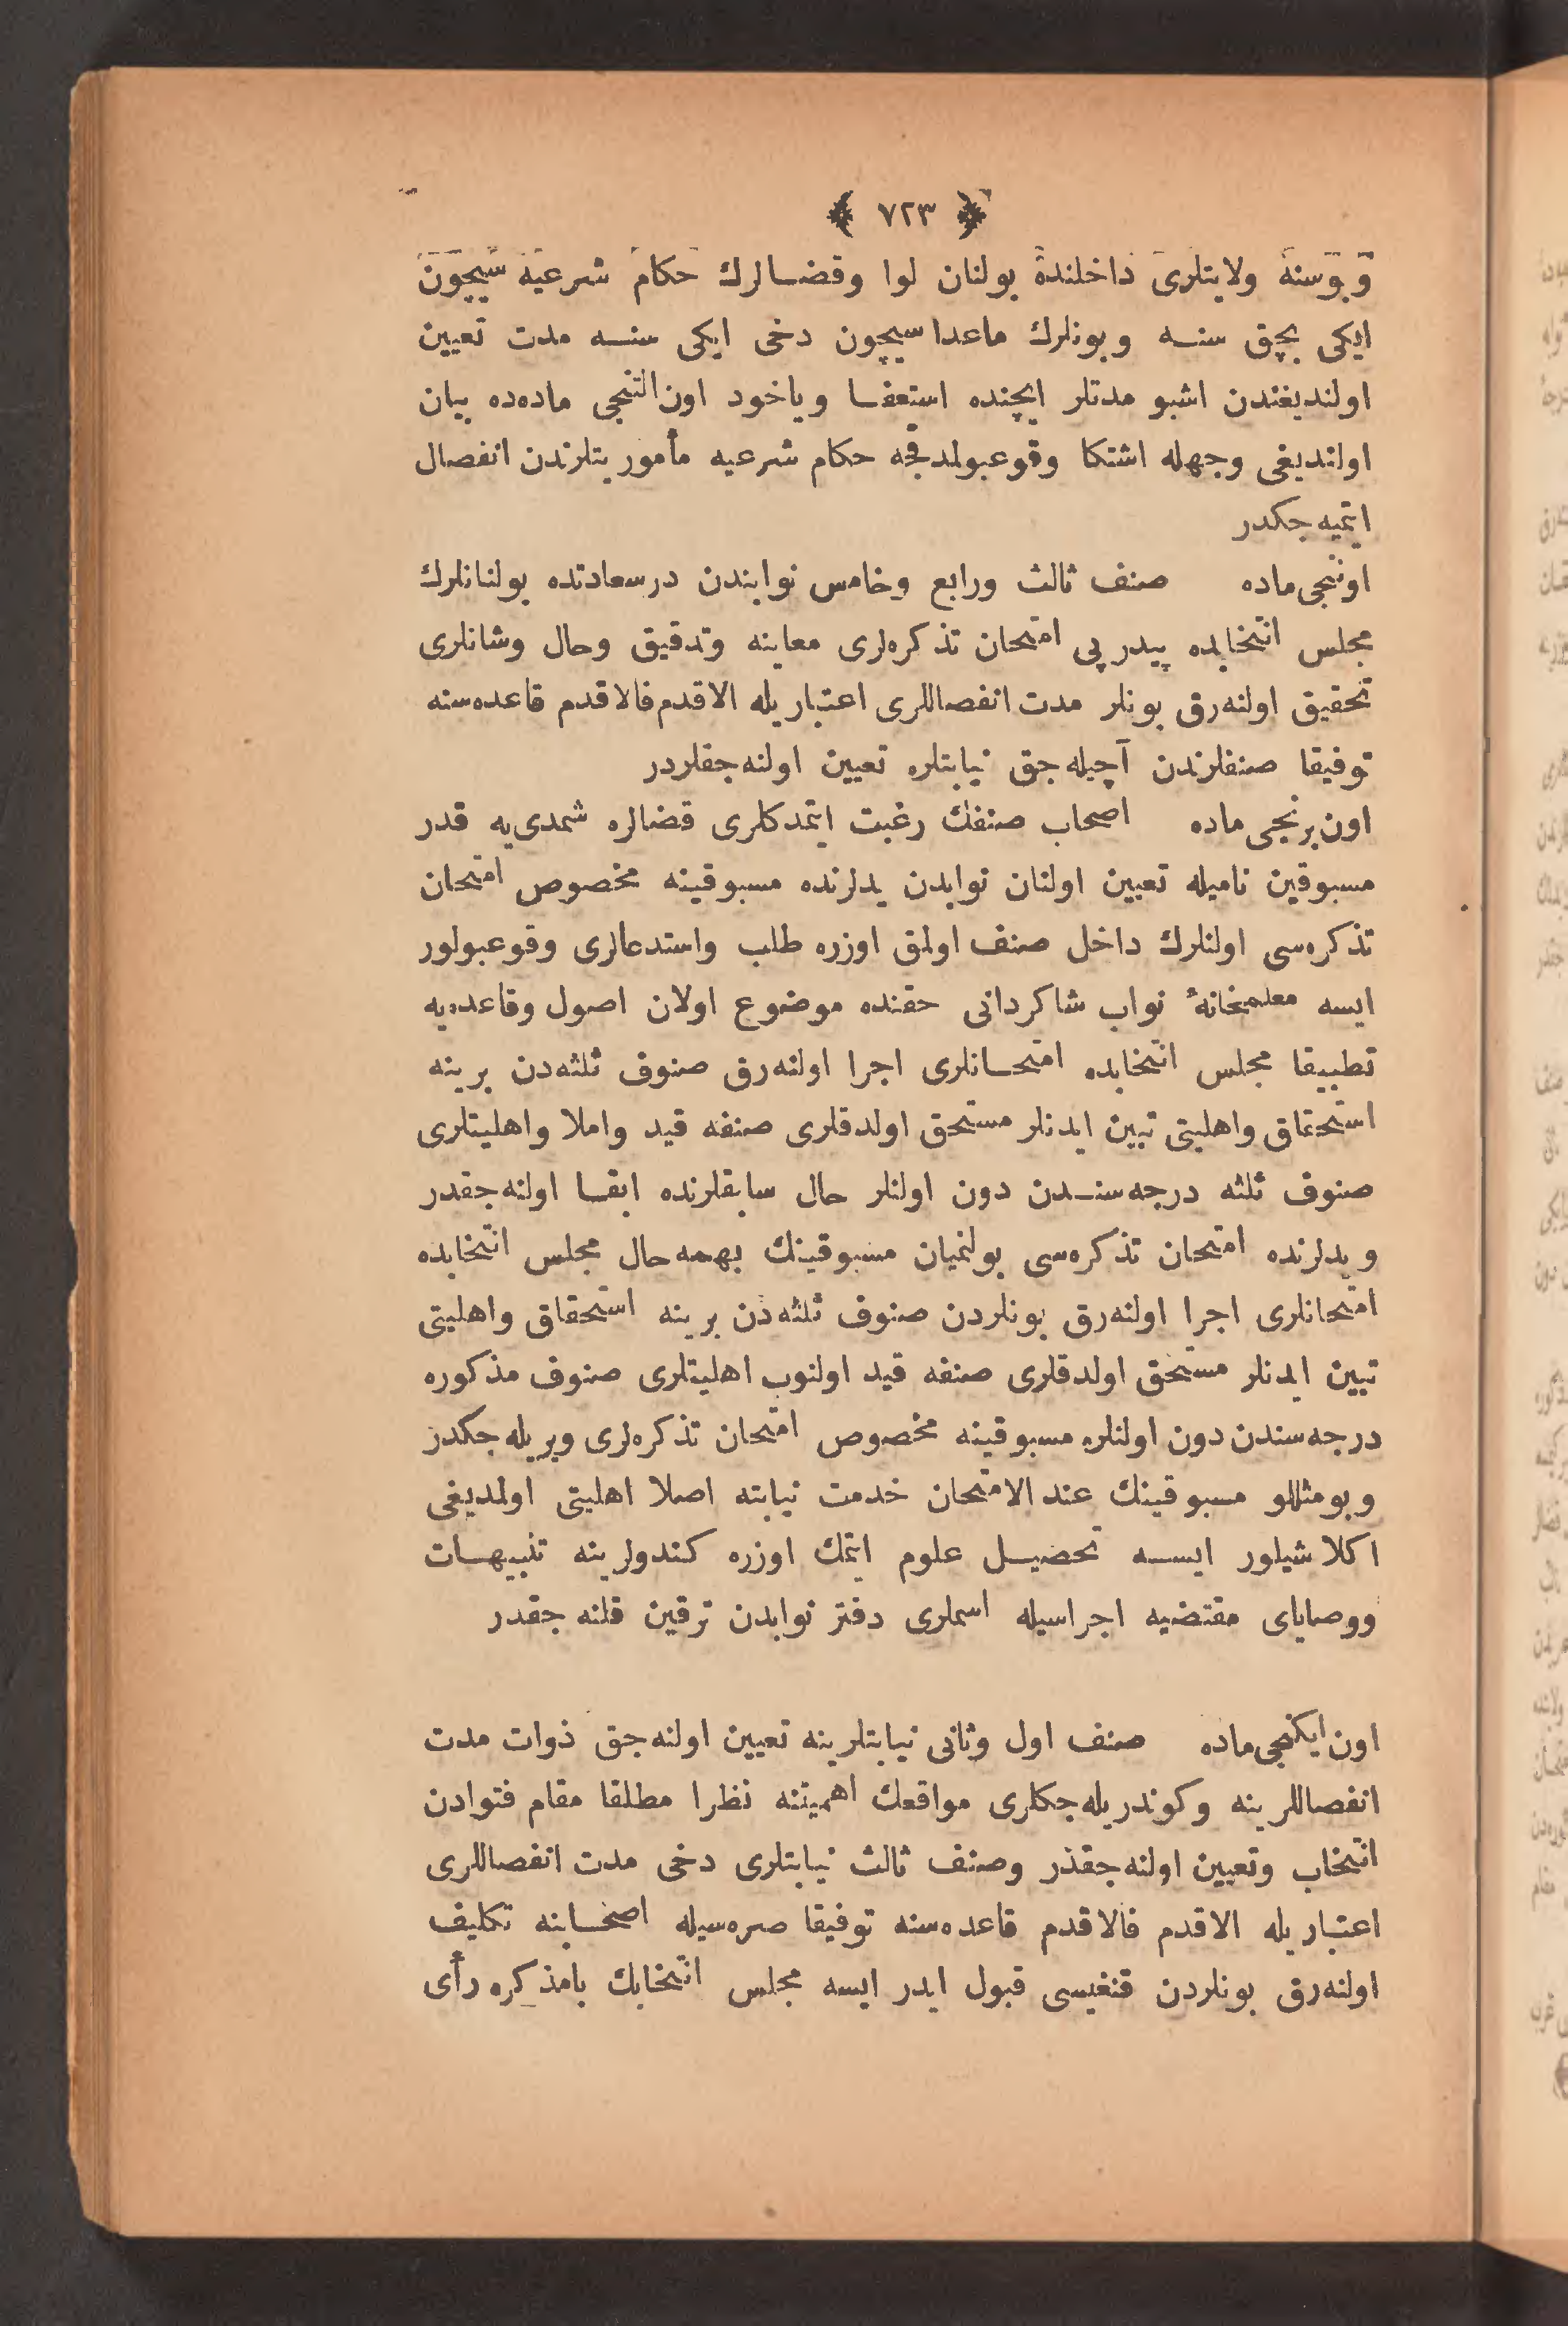 ﴿ ٧٢٣ ﴾
و بوسنه ولایتلری داخلنده بولنان لوا وقضالرك حكام شرعیه سیچون
ایكی بچق سنه و بونلرك ماعداسیچون دخی ایكی سنه مدت تعیین
اولندیغندن اشبو مدتلر ایچنده استعفا و یاخود اون التنجی ماده‌ده بیان
اولندیغی وجهله اشتكا وقوعبولمدقجه حكام شرعیه مأموریتلرندن انفصال
ایتمیه‌جكدر
اوننجی ماده صنف ثالث ورابع وخامس نوابندن درسعادتده بولنانلرك
مجلس انتخابده پیدرپی امتحان تذكره‌لری معاینه وتدقیق وحال وشانلری
تحقیق اولنه‌رق بونلر مدت انفصاللری اعتباریله الاقدم فالاقدم قاعده‌سنه
توفیقا صنفلرندن آچیله‌جق نیابتلره تعیین اولنه‌جقلردر
اون برنجی ماده اصحاب صنفك رغبت ایتمدكلری قضالره شمدی‌یه قدر
مسبوقین نامیله تعیین اولنان نوابدن یدلرنده مسبوقینه مخصوص امتحان
تذكره‌سی اولنلرك داخل صنف اولمق اوزره طلب واستدعالری وقوعبولور
ایسه معلمخانهٔ نواب شاكردانی حقنده موضوع اولان اصول وقاعده‌یه
تطبیقا مجلس انتخابده امتحانلری اجرا اولنه‌رق صنوف ثلثه‌دن برینه
استحقاق واهلیتی تبین ایدنلر مستحق اولدقلری صنفه قید واملا واهلیتلری
صنوف ثلثه درجه‌سندن دون اولنلر حال سابقلرنده ابقا اولنه‌جقدر
و یدلرنده امتحان تذكره‌سی بولنمیان مسبوقینك بهمه‌حال مجلس انتخابده
امتحانلری اجرا اولنه‌رق بونلردن صنوف ثلثه‌دن برینه استحقاق واهلیتی
تبین ایدنلر مستحق اولدقلری صنفه قید اولنوب اهلیتلری صنوف مذكوره
درجه‌سندن دون اولنلره مسبوقینه مخصوص امتحان تذكره‌لری ویریله‌جكدر
و بومثللو مسبوقینك عندالامتحان خدمت نیابته اصلا اهلیتی اولمدیغی
اكلاشیلور ایسه تحصیل علوم ایتمك اوزره كندولرینه تنبیهات
ووصایای مقتضیه اجراسیله اسملری دفتر نوابدن ترقین قلنه‌جقدر
اون ایكنجی ماده صنف اول وثانی نیابتلرینه تعیین اولنه‌جق ذوات مدت
انفصاللرینه وكوندریله‌جكلری مواقعك اهمیتنه نظرا مطلقا مقام فتوادن
انتخاب وتعیین اولنه‌جقدر وصنف ثالث نیابتلری دخی مدت انفصاللری
اعتباریله الاقدم فالاقدم قاعده‌سنه توفیقا صره‌سیله اصحابنه تكلیف
اولنه‌رق بونلردن قنغیسی قبول ایدر ایسه مجلس انتخابك بامذكره رأی